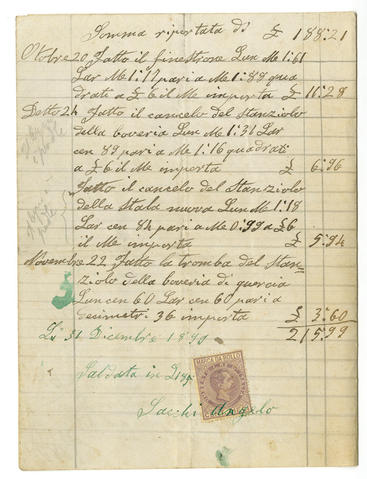 Somma riportata di £ 188:21
Ottobre 20 Fatto il finestrone Lun M e 1:61
Lar M e 1:17 pari a M e 1:88 qua
drati a £ 6 il M e importa £ 11:28
Detto 24 Fatto il cancelo del stanziolo
della boveria Lun M e 1:31 Lar
cen 89 pari a M e 1:16 quadrati
a £ 6 il M e importa £ 6:96
Fatto il cancelo del stanziolo
della Stala nuova Lun M e 1:18
Lar cen 84 pari a M e 0:99 a £ 6
il M e importa £ 5:94
Novembre 22 Fatto la tromba del stan=
ziolo della boveria di quercia
Lun cen 60 Lar cen 60 pari a
decimetri 36 importa £ 3:60
215:99
Li 31 Dicembre 1890
MARCA DA BOLLO
Saldata in
Sacchi Angelo